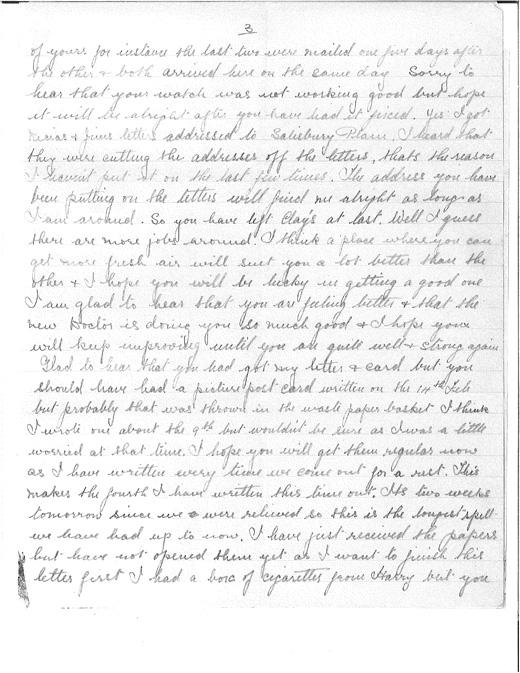 3
of yours for instance the last two were mailed one five days after
the other & both arrived here on the same day Sorry to
hear that your watch was not working good but hope
it will be alright after you have had it fixed. Yes I got
& Jims letters addressed to Salisbury Plain, I heard that
they were cutting the addresses off the letters, thats the reason
I havent put it on the last few times. The address you have
been putting on the letters will find me alright as long as
I am around. So you have left Clay's at last. Well I guess
there are more jobs around. I think a place where you can
get more fresh air will suit you a lot better than the
other & I hope you will be lucky in getting a good one
I am glad to hear that you are feeling better & that the
new Doctor is doing you so much good & I hope you
will keep improving until you are quite well & strong again
Glad to hear that you had got my letter & card but you
should have had a picture post card written on the 14th Feb
but probably that was thrown in the waste paper basket I think
I wrote one about the 9th but wouldn't be sure as I was a little
worried at that time. I hope you will get them regular now
as I have written every time we come out for a rest. This
makes the fourth I have written this time out. Its two weeks
tomorrow since we were relieved so this is the longest spell
we have had up to now. I have just received the papers
but have not opened them yet as I want to finish this
letter first I had a box of cigarettes from Harry but you